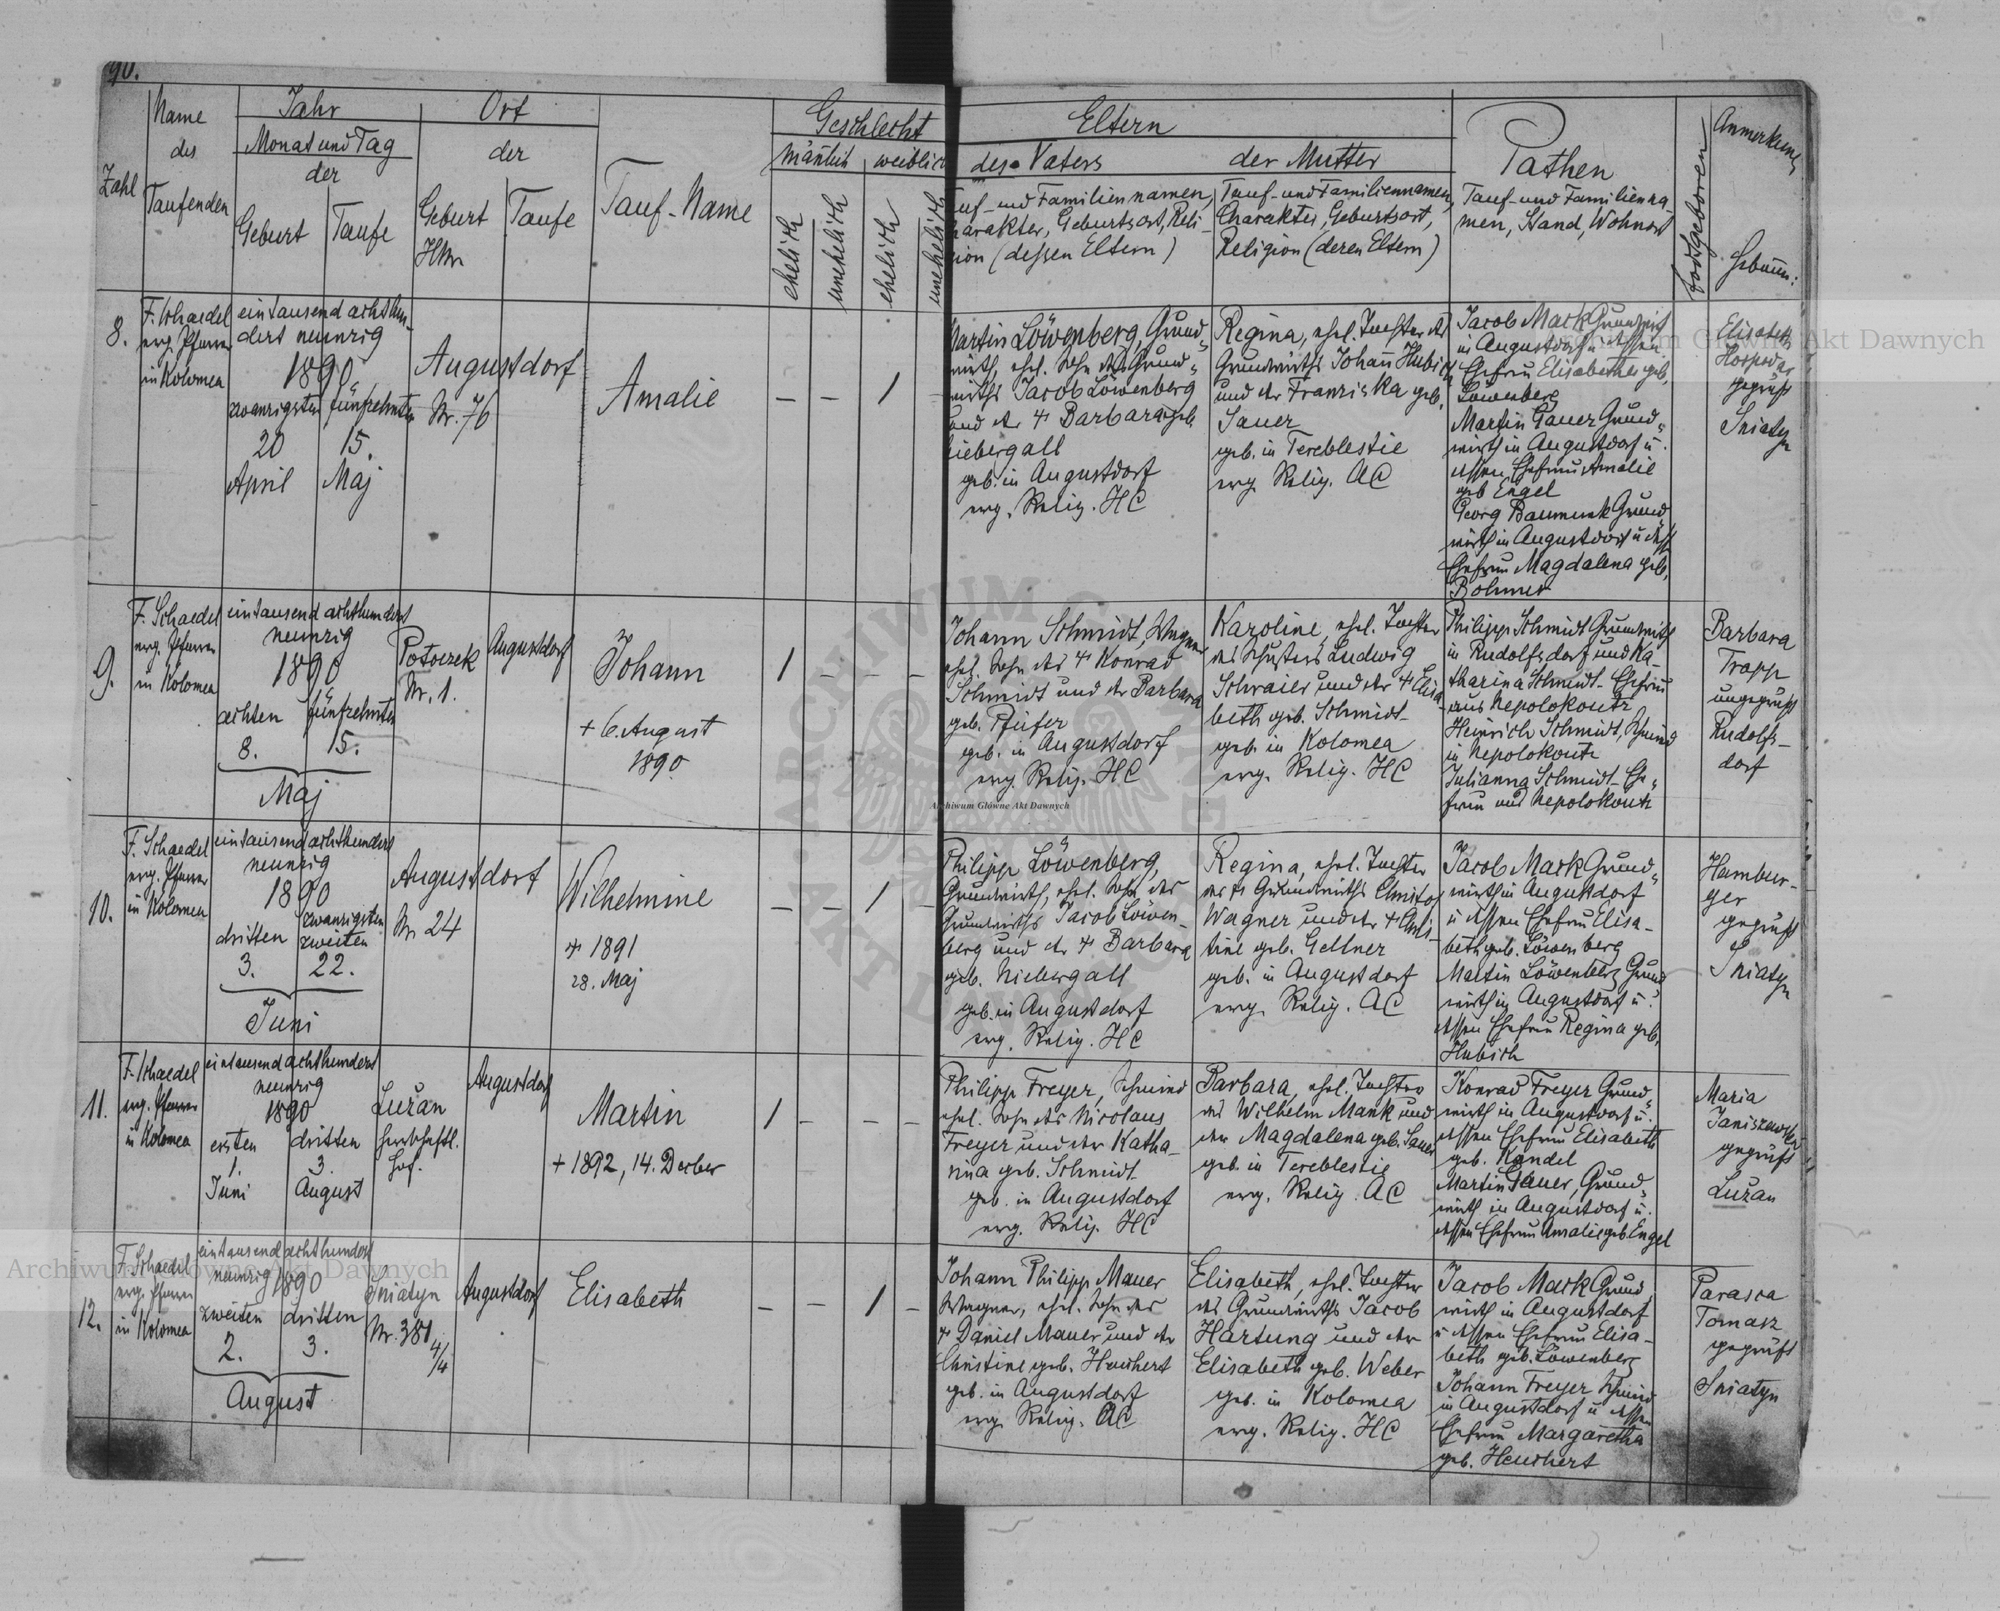 90.
Zahl
Name
des
Taufenden
Jahr
Monat und Tag
der
Geburt
Taufe
Ort
der
Geburt
HNr
Taufe
Tauf-Name
Geschlecht
mänlich
weiblich
ehelich
unehelich
ehelich
unehelich
Eltern
des Vaters
uf- und Familiennamen,
harakter, Geburtsort, Reli-
ion (dessen Eltern)
der Mutter
Tauf- und Familiennamen,
Charakter, Geburtsort,
Religion (deren Eltern)
Pathen
Tauf- und Familienna
men, Stand, Wohnort
todtgeboren
Anmerkung
Hebamm:
8.
F. Schaedel
erg. Pfarrer
in Kolomea
eintausend achthun-
dert neunzig
1890
zwanzigsten
20
April
fünfzehnten
15.
Maj
Augustdorf
Nr. 76
Amalie
– – 1 –
Martin Löwenberg, Grund-
wirth, ehel. Sohn des Grund-
wirths Jacob Löwenberg
und der + Barbara geb.
Niebergall
geb. in Augustdorf
evg. Relig. HC
Regina, ehel. Tochter des
Grundwirths Johann Hubich
und der Franziska geb.
Sauer
geb. in Tereblestie
evg. Relig. AC
Jacob Mack Grundwirth
in Augustdorf u. dessen
Ehefrau Elisabetha geb.
Löwenberg
Martin Sauer Grund-
wirth in Augustdorf u.
dessen Ehefrau Amalie
geb Engel
Georg Baumunk Grund-
wirth in Augustdorf u. dess
Ehefrau Magdalena geb.
Böhmer
Elisabeth
Hospodar
geprüft
Sniatyn
9.
F. Schaedel
evg. Pfarrer
in Kolomea
eintausend achthundert
neunzig
1890
achten
8.
fünfzehnten
15.
Maj
Potoczek
Nr. 1.
Augustdorf
Johann
+ 6. August
1890
1 – – –
Johann Schmidt, Wagner
ehel. Sohn des + Konrad
Schmidt und der Barbara
geb. Pfeifer
geb. in Augustdorf
evg. Relig. HC
Karoline, ehel. Tochter
des Schusters Ludwig
Schraier und der + Elisa
beth geb. Schmidt
geb. in Kolomea
evg. Relig. HC
Philipp Schmidt Grundwirth
in Rudolfsdorf und Ka-
tharina Schmidt Ehefrau
aus Nepolokoutz
Heinrich Schmidt, Schmied
in Nepolokoutz
Julianna Schmidt Ehe-
frau aus Nepolokoutz
Barbara
Tropp
ungeprüft
Rudolfs-
dorf
10.
F. Schaedel
evg. Pfarrer
in Kolomea
eintausend achthundert
neunzig
1890
dritten
3.
zwanzigsten
zweiten
22.
Juni
Augustdorf
Nr. 24
Wilhelmine
+ 1891
28. Maj
– – 1 –
Philipp Löwenberg,
Grundwirth, ehel. Sohn des
Grundwirths Jacob Löwen-
berg und der + Barbara
geb. Niebergall
geb. in Augustdorf
evg. Relig. HC
Regina, ehel. Tochter
des + Grundwirths Christof
Wagner und der + Chris-
tine geb. Gellner
geb. in Augustdorf
evg. Relig. AC
Jacob Mack Grund-
wirth in Augustdorf
u. dessen Ehefrau Elisa-
beth geb. Löwenberg
Martin Löwenberg Grund
wirth in Augustdorf u.
dessen Ehefrau Regina geb.
Hubich
Hambur-
ger
geprüft
Sniatyn
11.
F. Schaedel
evg. Pfarrer
in Kolomea
eintausend achthundert
neunzig
1890
ersten
1.
Juni
dritten
3.
August
Lużan
herrschaftl.
Hof.
Augustdorf
Martin
+ 1892, 14. Dezber
1 – – –
Philipp Freyer, Schmied
ehel. Sohn des Nicolaus
Freyer und der Katha-
rina geb. Schmidt
geb. in Augustdorf
evg. Relig. HC
Barbara, ehel. Tochter
des Wilhelm Mank und
der Magdalena geb. Sauer
geb. in Tereblestie
evg. Relig. AC
Konrad Freyer Grund-
wirth in Augustdorf u.
dessen Ehefrau Elisabeth
geb. Kandel
Martin Sauer, Grund-
wirth in Augustdorf u.
dessen Ehefrau Amalie geb Engel
Maria
Janiszewska
geprüft
Lużan
12.
F. Schaedel
evg. Pfarrer
in Kolomea
eintausend achthundert
neunzig 1890
zweiten
2.
dritten
3.
August
Sniatyn
Nr. 381
4/4
Augustdorf
Elisabeth
– – 1 –
Johann Philipp Mauer
Wagner, ehel. Sohn des
+ Daniel Mauer und der
Christine geb. Heuchert
geb. in Augustdorf
evg. Relig. AC
Elisabeth, ehel. Tochter
des Grundwirths Jacob
Hartung und der
Elisabeth geb. Weber
geb. in Kolomea
evg. Relig. HC
Jacob Mack Grund
wirth in Augustdorf
u. dessen Ehefrau Elisa-
beth geb. Löwenberg
Johann Freyer Schmied
in Augustdorf u. dessen
Ehefrau Margaretha
geb. Heuchert
Parasca
Tomasz
geprüft
Sniatyn
Archiwum Główne Akt Dawnych
Archiwum Główne Akt Dawnych
Archiwum Główne Akt Dawnych